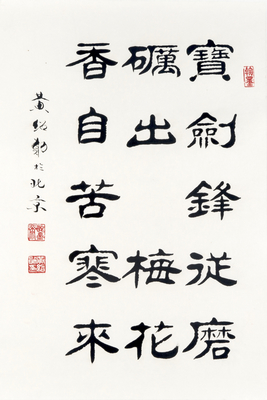 寶劍鋒從磨
礪出梅花
香自苦寒來
黄绍勤於北京